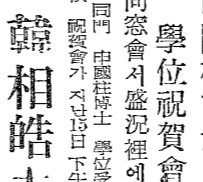 學位祝賀會
同窓會서盛況裡에
同門 申國柱博士 學位受
祝賀會가 지난15日 下午
韓相皓